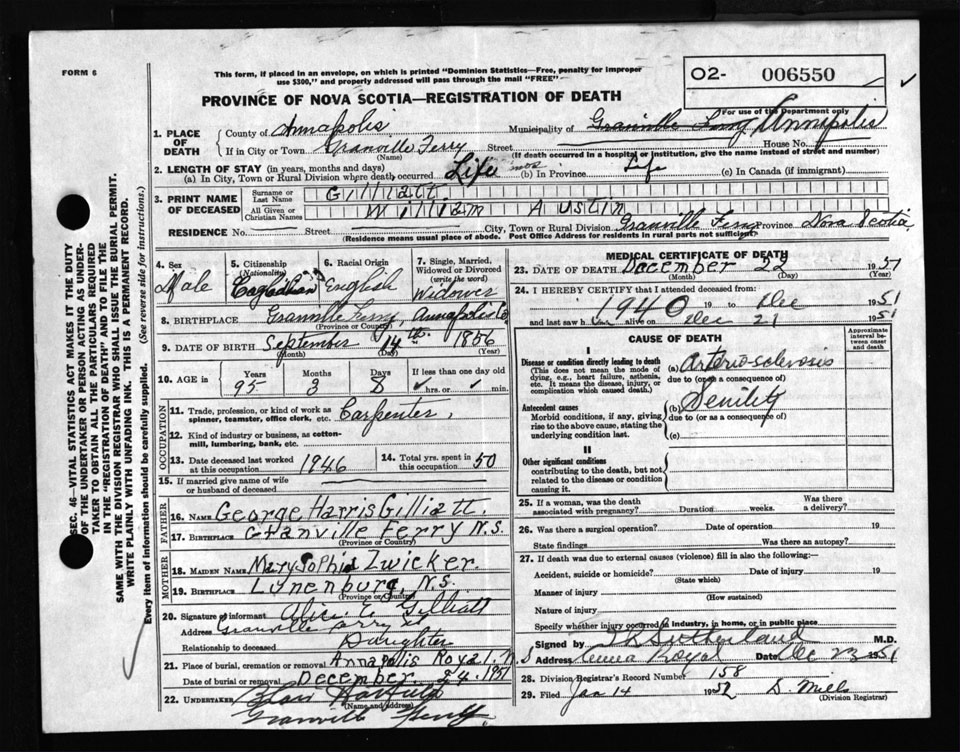 FORM 6
This form, if placed in an envelope, on which is printed "Dominion Statistics—Free, penalty for improper
use $300," and properly addressed will pass through the mail "FREE"
O2- 006550
For use of the Department only
PROVINCE OF NOVA SCOTIA—REGISTRATION OF DEATH
1. PLACE OF DEATH
County of Annapolis
Municipality of Granville Ferry Annapolis
If in City or Town Granville Ferry Street House No.
(Name) (If death occurred in a hospital or institution, give the name instead of street and number)
2. LENGTH OF STAY (in years, months and days)
(a) In City, Town or Rural Division where death occurred Life mos (b) In Province Life (c) In Canada (if immigrant)
3. PRINT NAME OF DECEASED
Surname or Last Name Gilliatt
All Given or Christian Names William Austin
RESIDENCE No. Street City, Town or Rural Division Granville Ferry Province Nova Scotia
(Residence means usual place of abode. Post Office Address for residents in rural parts not sufficient)
4. Sex Male
5. Citizenship (Nationality) Canadian
6. Racial Origin English
7. Single, Married, Widowed or Divorced (write the word) Widower
8. BIRTHPLACE Granville Ferry, Annapolis Co
(Province or Country)
9. DATE OF BIRTH September 14th 1856
(Month) (Day) (Year)
10. AGE in Years 95 Months 3 Days 8 If less than one day old hrs. or min.
OCCUPATION
11. Trade, profession, or kind of work as spinner, teamster, office clerk, etc. Carpenter,
12. Kind of industry or business, as cotton-mill, lumbering, bank, etc.
13. Date deceased last worked at this occupation 1946
14. Total yrs. spent in this occupation 50
15. If married give name of wife or husband of deceased
FATHER
16. NAME George Harris Gilliatt.
17. BIRTHPLACE Granville Ferry N.S.
(Province or Country)
MOTHER
18. MAIDEN NAME Mary Sophia Zwicker.
19. BIRTHPLACE Lunenburg N.S.
(Province or Country)
20. Signature of informant Alice E. Gilliatt
Address Granville Ferry
Relationship to deceased Daughter
21. Place of burial, cremation or removal Annapolis Royal. N
Date of burial or removal December 24. 1951
22. UNDERTAKER
(Name and address)
Granville Ferry
MEDICAL CERTIFICATE OF DEATH
23. DATE OF DEATH December 22 1951
(Month) (Day)
24. I HEREBY CERTIFY that I attended deceased from:
1940 19 to Dec 1951
and last saw h im alive on Dec 21 1951
CAUSE OF DEATH
Approximate interval between onset and death
I
Disease or condition directly leading to death
(This does not mean the mode of dying, e.g., heart failure, asthenia, etc. It means the disease, injury, or complication which caused death.)
(a) Arteriosclerosis
due to (or as a consequence of)
Antecedent causes
Morbid conditions, if any, giving rise to the above cause, stating the underlying condition last.
(b) Senility
due to (or as a consequence of)
(c)
II
Other significant conditions
contributing to the death, but not related to the disease or condition causing it.
25. If a woman, was the death associated with pregnancy? Duration weeks. Was there a delivery?
26. Was there a surgical operation? Date of operation 19
State findings Was there an autopsy?
27. If death was due to external causes (violence) fill in also the following:—
Accident, suicide or homicide? Date of injury 19
(State which)
Manner of injury
(How sustained)
Nature of injury
Specify whether injury occurred in industry, in home, or in public place
Signed by Sutherland M.D.
Address Anna Royal Date Dec 23 1951
28. Division Registrar's Record Number 158
29. Filed Jan 14 1952 D. Mills
(Division Registrar)
SEC. 46—VITAL STATISTICS ACT MAKES IT THE DUTY
OF THE UNDERTAKER OR PERSON ACTING AS UNDER-
TAKER TO OBTAIN ALL THE PARTICULARS REQUIRED
IN THE "REGISTRATION OF DEATH" AND TO FILE THE
SAME WITH THE DIVISION REGISTRAR WHO SHALL ISSUE THE BURIAL PERMIT.
WRITE PLAINLY WITH UNFADING INK. THIS IS A PERMANENT RECORD.
Every item of Information should be carefully supplied. (See reverse side for instructions.)